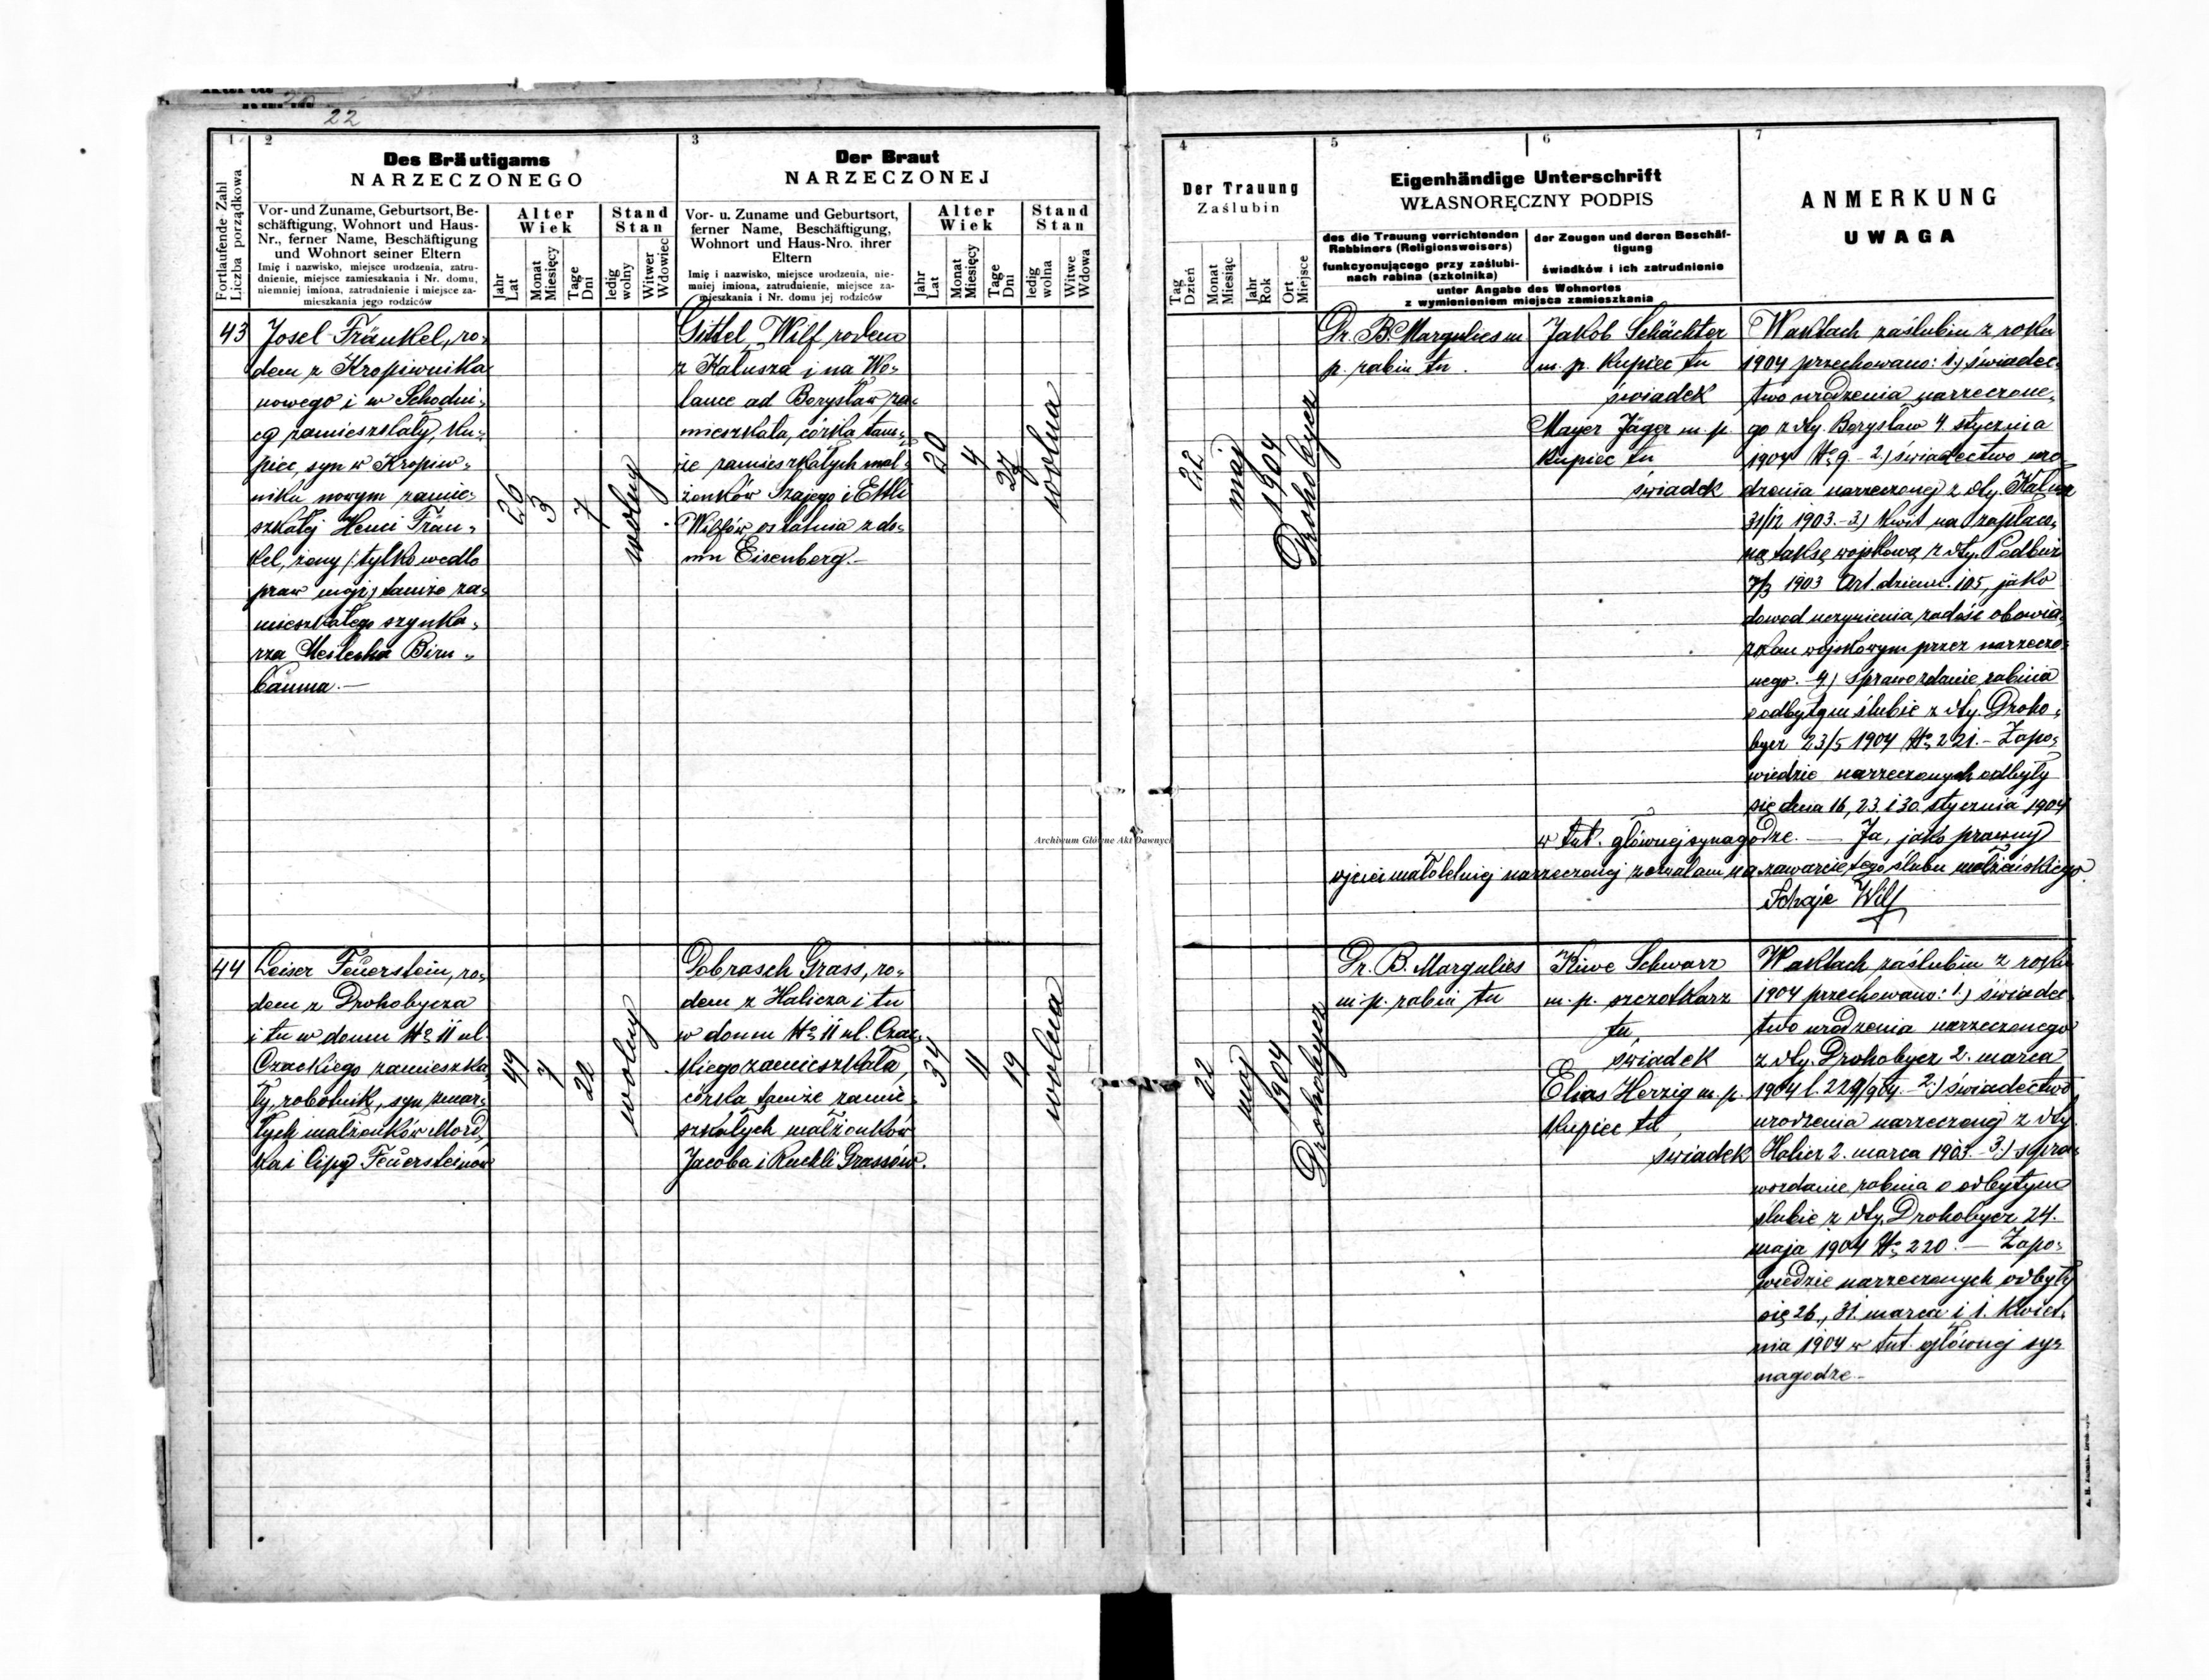 22
1
2
3
Fortlaufende Zahl
Liczba porządkowa
Des Bräutigams
NARZECZONEGO
Vor- und Zuname, Geburtsort, Be-
schäftigung, Wohnort und Haus-
Nr., ferner Name, Beschäftigung
und Wohnort seiner Eltern
Imię i nazwisko, miejsce urodzenia, zatru-
dnienie, miejsce zamieszkania i Nr. domu,
niemniej imiona, zatrudnienie i miejsce za-
mieszkania jego rodziców
Alter
Wiek
Jahr
Lat
Monat
Miesięcy
Tage
Dni
Stand
Stan
ledig
wolny
Witwer
Wdowiec
Der Braut
NARZECZONEJ
Vor- u. Zuname und Geburtsort,
ferner Name, Beschäftigung,
Wohnort und Haus-Nro. ihrer
Eltern
Imię i nazwisko, miejsce urodzenia, nie-
mniej imiona, zatrudnienie, miejsce za-
mieszkania i Nr. domu jej rodziców
Alter
Wiek
Jahr
Lat
Monat
Miesięcy
Tage
Dni
Stand
Stan
ledig
wolna
Witwe
Wdowa
43
Josel Fränkel, ro-
dem z Kropiwnika
nowego i w Schodni-
cy zamieszkały, ku-
piec, syn w Kropiw-
niku nowym zamie-
szkałej Henci Frän-
kel, żony /: tylko wedle
praw mojż, tamże za-
mieszkałego szynka-
rza Meilecha Birn-
bauma.—
26
3
7
wolny
Gittel Wilf rodem
z Kałusza i na Wo-
lance ad Borysław za-
mieszkała, córka tam-
że zamieszkałych mał-
żonków Szajego i Ettli
Wilfów, ostatnia z do-
mu Eisenberg.—
20
4
27
wolna
44
Leiser Feuerstein, ro-
dem z Drohobycza
i tu w domu No 11 ul.
Czackiego zamieszka-
ły, robotnik, syn zmar-
łych małżonków Mord-
ka i Cipy Feuersteinów
49
7
20
wolny
Dobrasch Grass, ro-
dem z Halicza i tu
w domu No 11 ul. Czac-
kiego zamieszkała,
córka tamże zamie-
szkałych małżonków
Jacoba i Ruchli Grassów.
34
11
19
wolna
Archiwum Główne Akt Dawnych
4
5
6
7
Der Trauung
Zaślubin
Tag
Dzień
Monat
Miesiąc
Jahr
Rok
Ort
Miejsce
Eigenhändige Unterschrift
WŁASNORĘCZNY PODPIS
des die Trauung verrichtenden
Rabbiners (Religionsweisers)
funkcyonującego przy zaślubi-
nach rabina (szkolnika)
der Zeugen und deren Beschäf-
tigung
świadków i ich zatrudnienie
unter Angabe des Wohnortes
z wymienieniem miejsca zamieszkania
ANMERKUNG
UWAGA
22
maj
1904
Drohobycz
Dr. B. Margulies m.
p. rabin tu.
Jakob Schächter
m. p. kupiec tu
świadek
Mayer Jäger m. p.
kupiec tu
świadek
W aktach zaślubin z roku
1904 przechowano: 1.) świadec-
two urodzenia narzeczone-
go z dty. Borysław 4 stycznia
1904 No 9.- 2.) świadectwo uro-
dzenia narzeczonej z dty. Kałusz
31/12 1903.- 3.) kwit na zapłaco-
ną taksę wojskową z dty. Podbuż
7/3 1903 Art. dzien. 105, jako
dowód uczynienia zadość obowią-
zkom wojskowym przez narzeczo-
nego.- 4.) sprawozdanie rabina
o odbytym ślubie z dty. Droho-
bycz 23/5 1904 No 221.- Zapo-
wiedzie narzeczonych odbyły
się dnia 16, 23. i 30. stycznia 1904
w tut. głównej synagodze. — Ja, jako prawny
ojciec małoletniej narzeczonej zezwalam na zawarcie tego ślubu małżeńskiego.
Schaje Wilf
22
maj
1904
Drohobycz
Dr. B. Margulies
m. p. rabin tu
Kiwe Schwarz
m. p. szczotkarz
tu,
świadek
Elias Herzig m. p.
kupiec tu,
świadek
W aktach zaślubin z roku
1904 przechowano: 1.) świadec-
two urodzenia narzeczonego
z dty. Drohobycz 2. marca
1904 l. 229/gty.- 2.) świadectwo
urodzenia narzeczonej z dty.
Halicz 2. marca 1903.- 3.) spra-
wozdanie rabina o odbytym
ślubie z dty. Drohobycz 24.
maja 1904 No 220.— Zapo-
wiedzie narzeczonych odbyły
się 26., 31. marca i 1. kwiet-
nia 1904 w tut. głównej sy-
nagodze.-